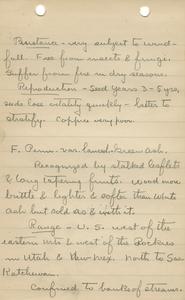 Resistance - very subject to wind-
fall. Free from insects & fungi.
Suffer from fire in dry seasons.
Reproduction - Seed years 3-5 yrs,
seeds lose vitality quickly - better to
stratify. Coppice very poor.
F. Penn. var. lanceol. Green Ash.
Recognized by stalked leaflets
& long narrow fruits. Wood more
brittle & lighter & softer than White
Ash but sold as & with it.
Range - U.S. west of the
eastern Mts & west of the Rockies
in Utah & New Mex. north to Sas-
katchewan.
Confined to banks of streams.